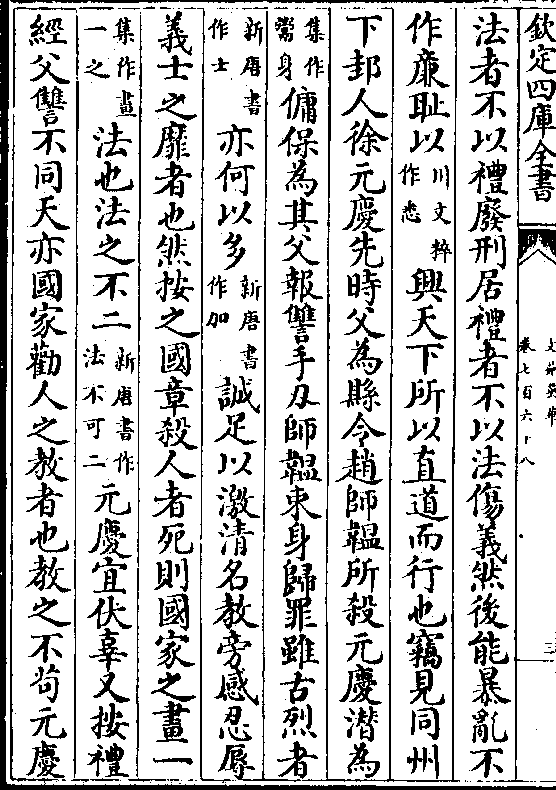 欽定四庫全書
文苑英華
卷七百六十八
三
法者不以禮廢刑居禮者不以法傷義然後能暴亂不
作廉耻以川文粹作悉興天下所以直道而行也竊見同州
下邽人徐元慶先時父為縣令趙師韞所殺元慶潛為
集作鬻身傭保為其父報讐手刃師韞束身歸罪雖古烈者
新唐書作士亦何以多新唐書作加誠足以激清名教旁感忍辱
義士之靡者也然按之國章殺人者死則國家之畫一
集作畫一之法也法之不二新唐書作法不可二元慶宜伏辜又按禮
經父讐不同天亦國家勸人之教者也教之不苟元慶